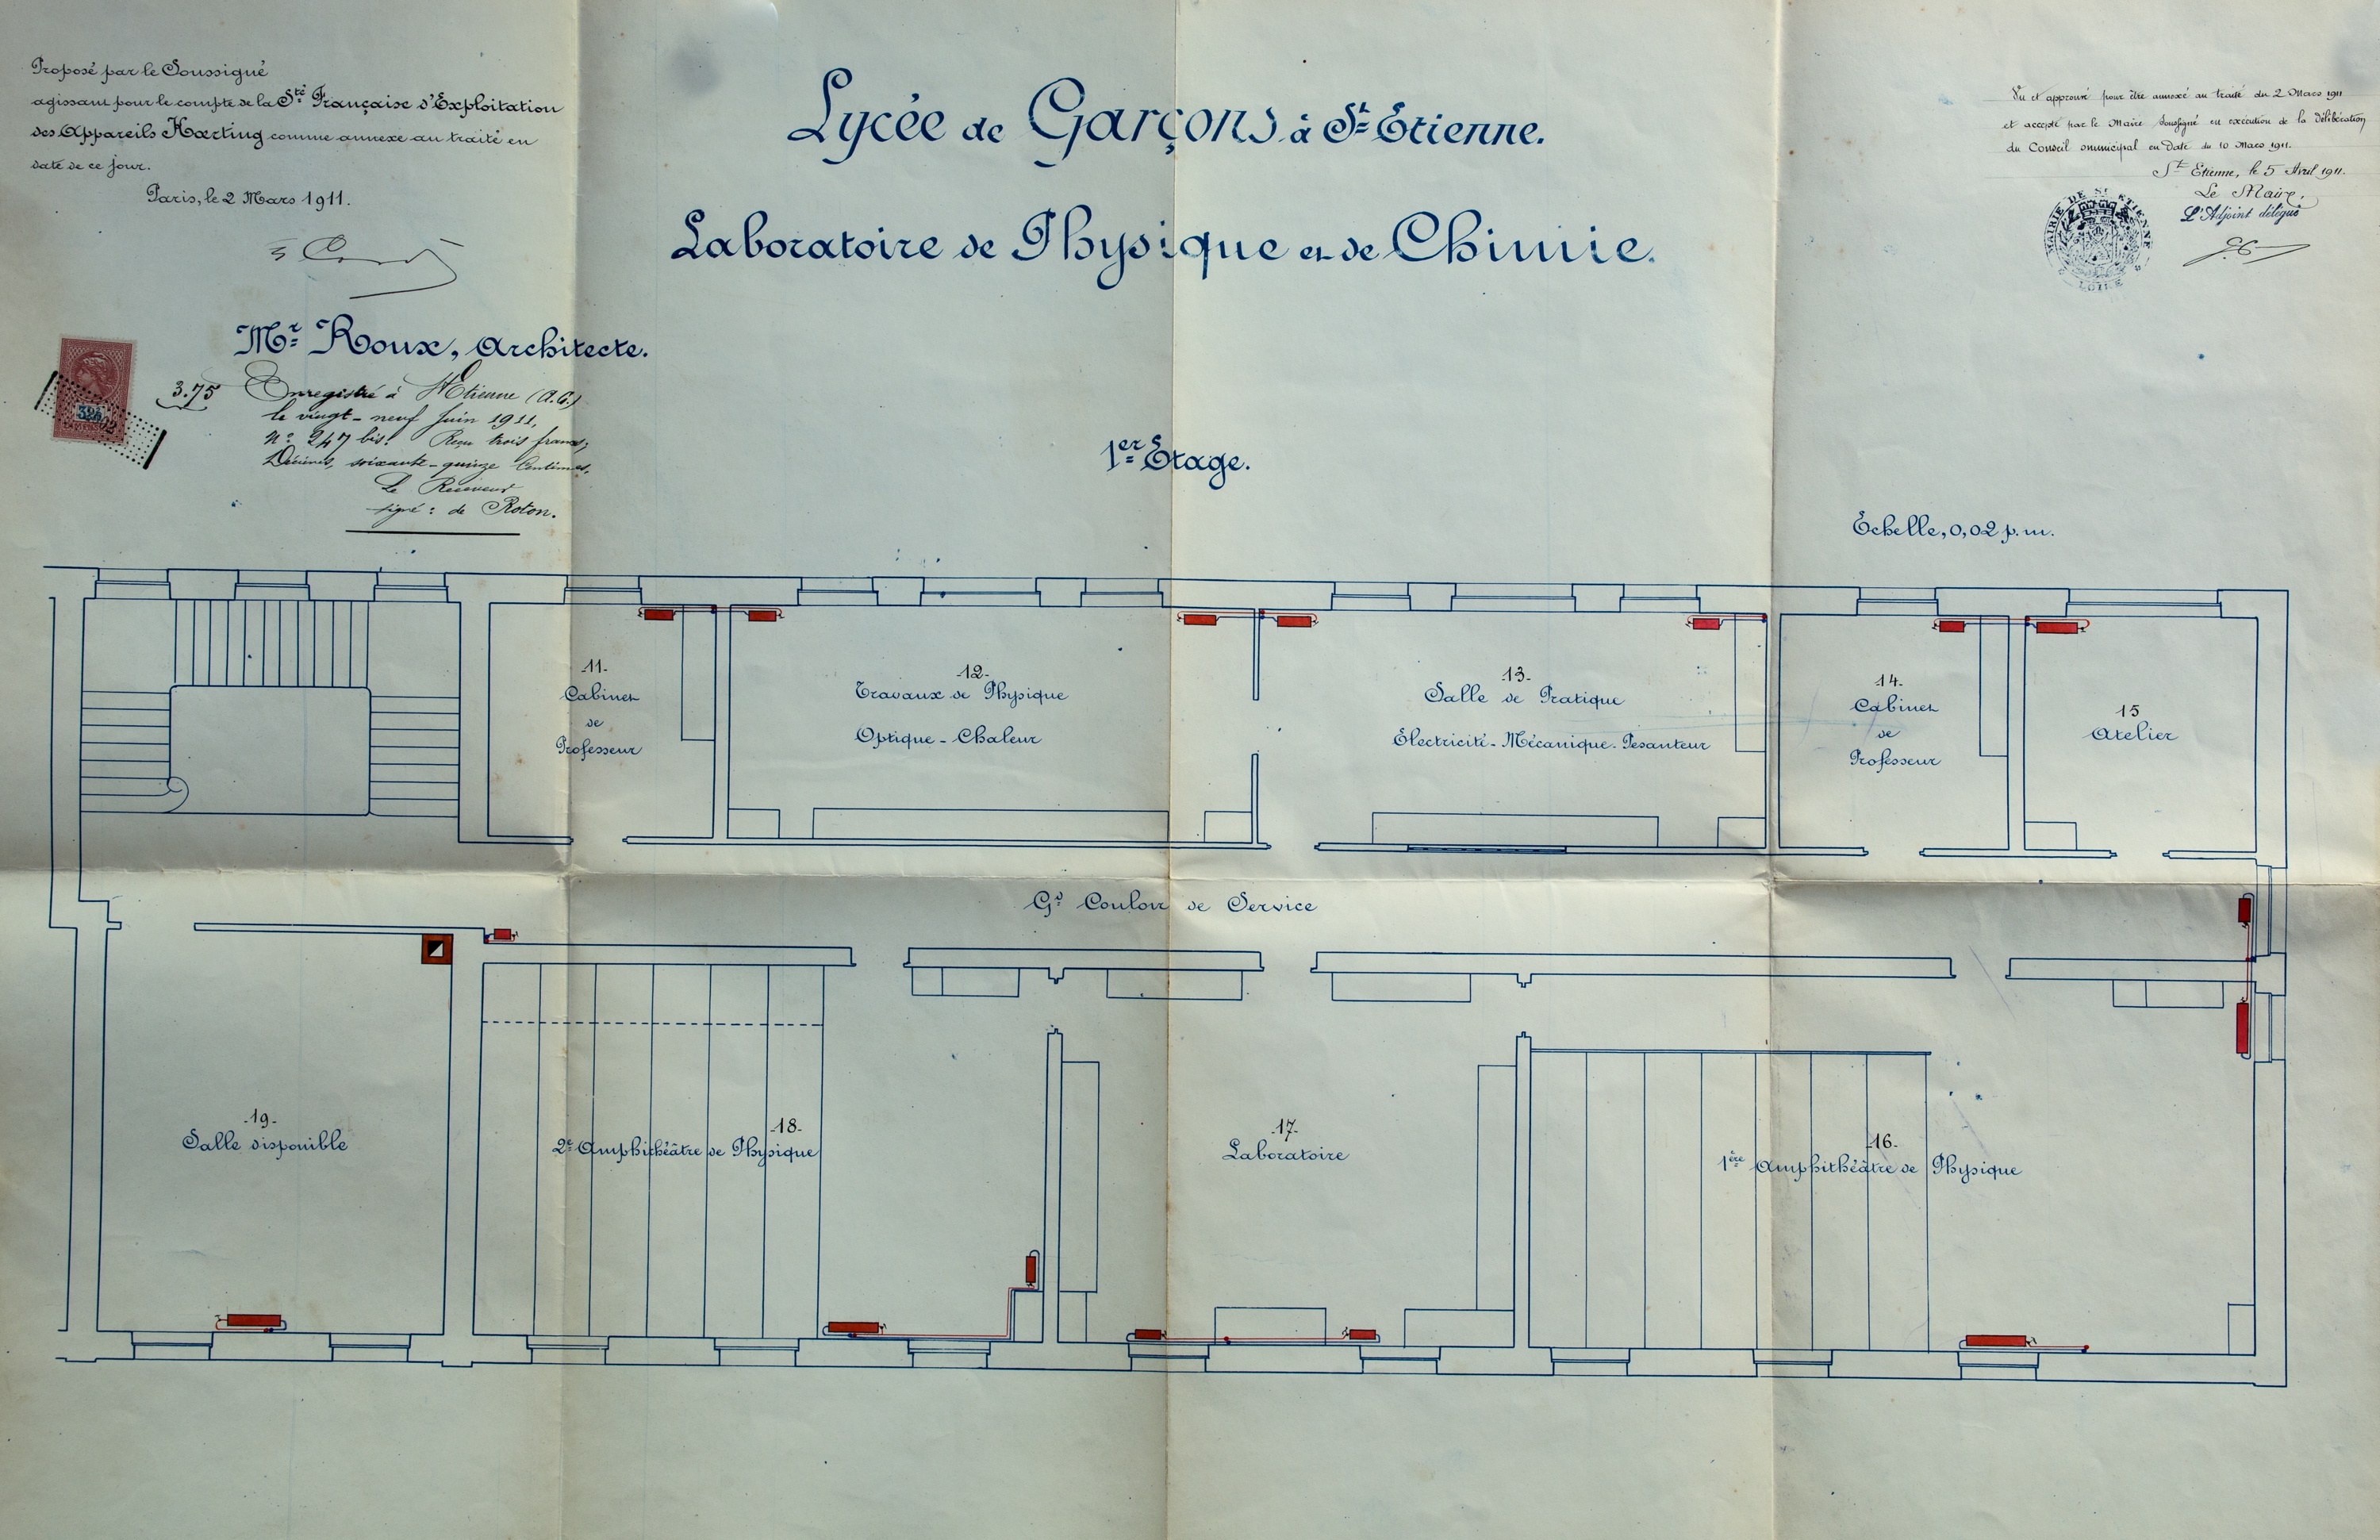 Proposé par le Soussigné
agissant pour le compte de la Sté Française d'Exploitation
des Appareils Kœrting comme annexe au traité en
date de ce jour.
Paris, le 2 Mars 1911.
Lycée de Garçons à St Etienne.
Laboratoire de Physique et de Chimie.
Vu et approuvé pour être annexé au traité du 2 Mars 1911
et accepté par le Maire soussigné en exécution de la délibération
du Conseil municipal en date du 10 Mars 1911.
St Etienne, le 5 Avril 1911.
Le Maire,
L'Adjoint délégué
MAIRIE DE ST ETIENNE
LOIRE
Mr Roux, Architecte.
3.75
Enregistré à St Etienne (A.C.)
le vingt-neuf Juin 1911,
No 247 bis. Reçu trois francs,
Décimes, soixante-quinze centimes.
Le Receveur
signé : de Roton.
1er Etage.
Echelle, 0,02 p.m.
-11-
Cabinet
de
Professeur
-12-
Travaux de Physique
Optique - Chaleur
-13-
Salle de Pratique
Electricité - Mécanique - Pesanteur
14-
Cabinet
de
Professeur
15
Atelier
Gd Couloir de Service
-19-
Salle disponible
-18-
2e Amphithéâtre de Physique
-17-
Laboratoire
-16-
1ère Amphithéâtre de Physique